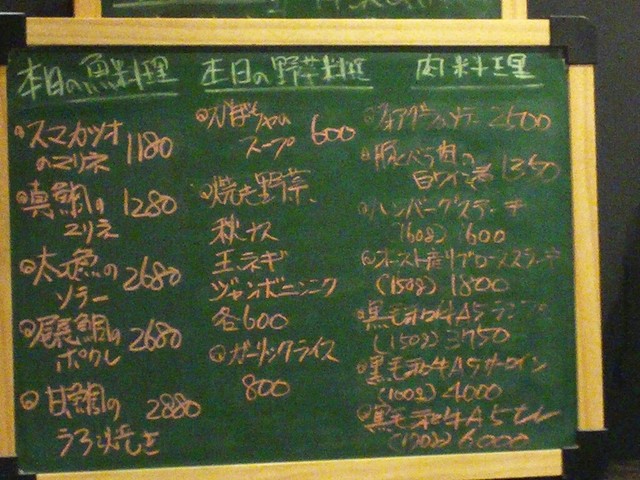 本日の魚料理
スマカツオ
のマリネ 1180
真鯛の 1280
マリネ
太刀魚の 2680
ソテー
尾長鯛の 2680
ポワレ
甘鯛の 2880
うろこ焼き
本日の野菜料理
スープ 600
焼き野菜
秋ナス
玉ネギ
ジャンボニンニク
各600
ガーリックライス
800
肉料理
フォアグラソテー 2500
豚バラ肉の
白ワイン煮 1350
ハンバーグステーキ
(160g) 1600
リブロースステーキ
(150g) 1800
黒毛和牛A5ランプ
(150g) 3750
黒毛和牛A5サーロイン
(100g) 4000
黒毛和牛A5ヒレ
6000